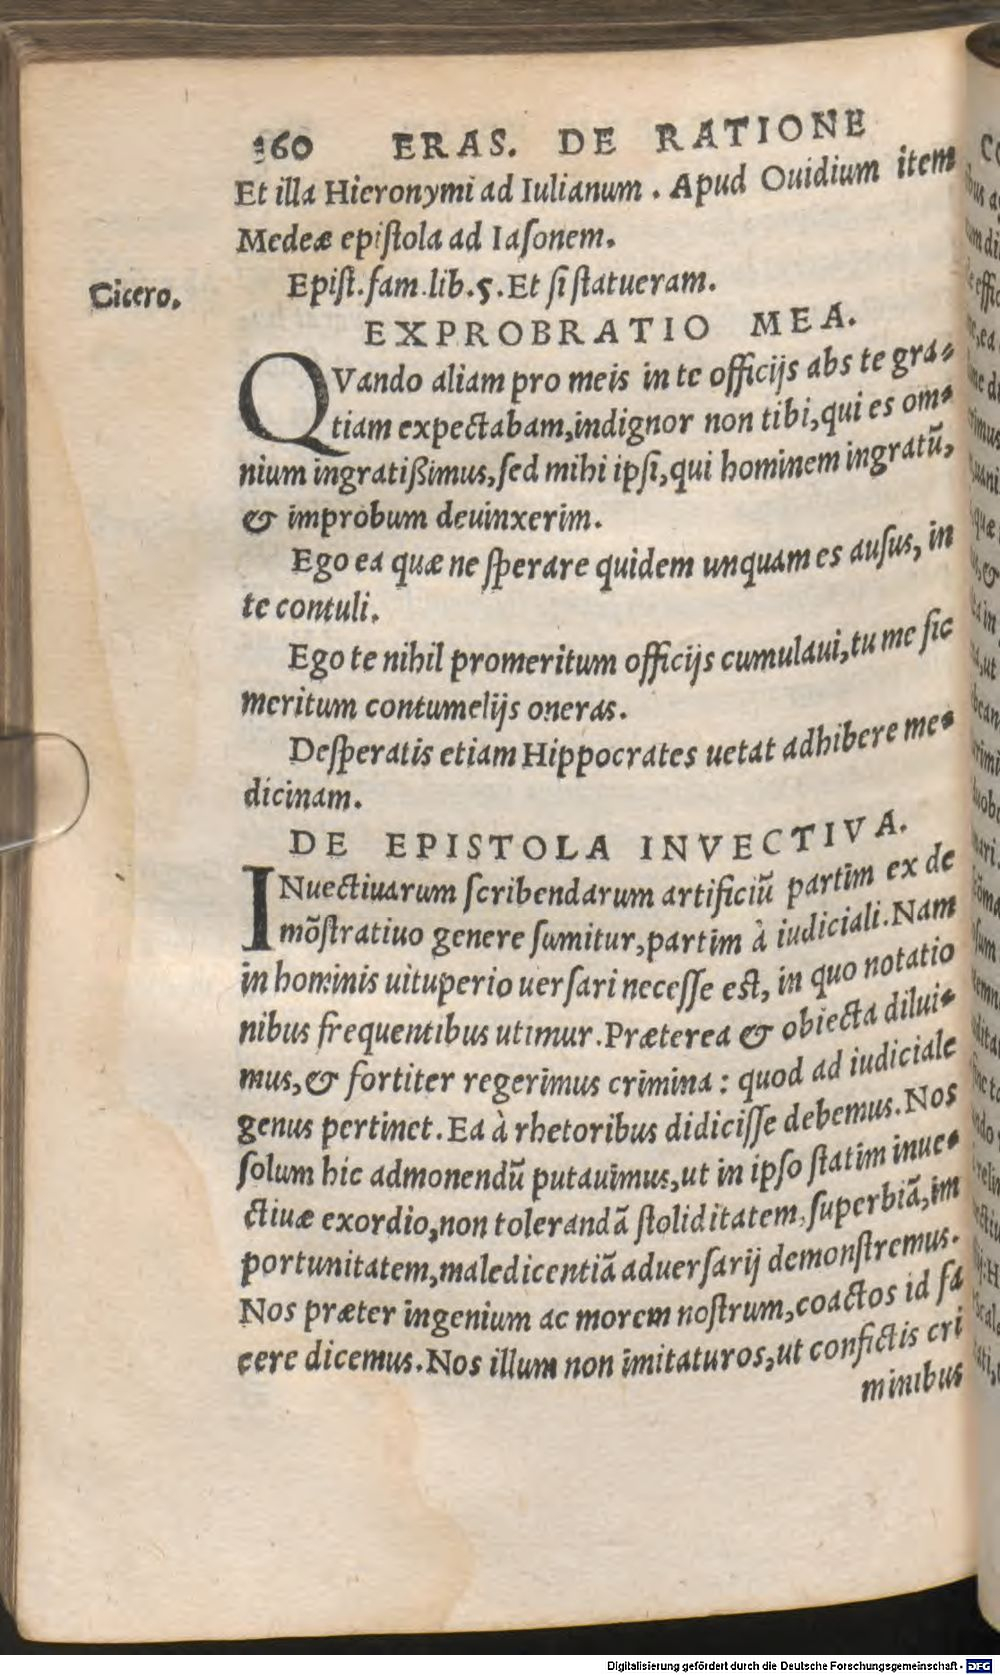 160 ERAS. DE RATIONE
Et illa Hieronymi ad Iulianum. Apud Ouidium item
Medeæ epiſtola ad Iaſonem.
Cicero.
Epiſt. fam. lib. 5. Et ſi ſtatueram.
EXPROBRATIO MEA.
QVando aliam pro meis in te officijs abs te gra-
tiam expectabam, indignor non tibi, qui es om-
nium ingratißimus, ſed mihi ipſi, qui hominem ingratū,
& improbum deuinxerim.
Ego ea quæ ne ſperare quidem unquam es auſus, in
te contuli.
Ego te nihil promeritum officijs cumulaui, tu me ſic
meritum contumelijs oneras.
Deſperatis etiam Hippocrates uetat adhibere me-
dicinam.
DE EPISTOLA INVECTIVA.
INuectiuarum ſcribendarum artificiū partim ex de
mõſtratiuo genere ſumitur, partim à iudiciali. Nam
in hominis uituperio uerſari neceſſe eſt, in quo notatio
nibus frequentibus utimur. Præterea & obiecta dilui-
mus, & fortiter regerimus crimina: quod ad iudiciale
genus pertinet. Ea à rhetoribus didiciſſe debemus. Nos
ſolum hic admonendū putauimus, ut in ipſo ſtatim inue-
ctiuæ exordio, non tolerandã ſtoliditatem, ſuperbiã, im
portunitatem, maledicentiã aduerſarij demonſtremus.
Nos præter ingenium ac morem noſtrum, coactos id fa
cere dicemus. Nos illum non imitaturos, ut confictis cri
minibus
Digitalisierung gefördert durch die Deutsche Forschungsgemeinschaft - DFG